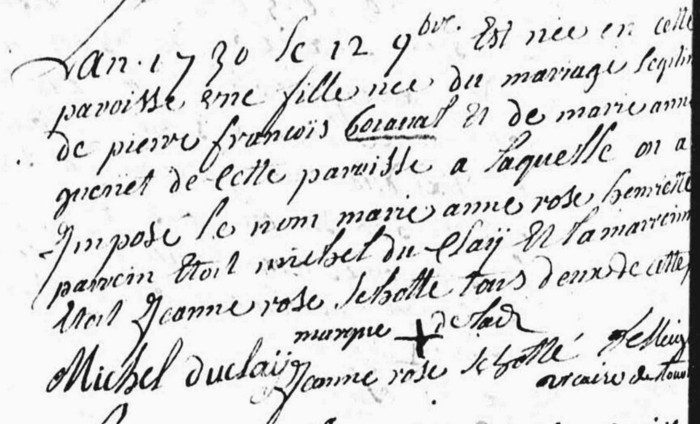 Lan 1730 le 12 9bre Est née en cette
paroisse une fille née du mariage
de pierre françois Coraual Et de marie anne
guenet de Cette paroisse a laquelle on a
Jmposé le nom marie anne rose henriette
parrein Etoit michel du Claÿ Et la marreine
Etoit Jeanne rose Schotte tous deux de cette
marque + de lad
Michel duclaÿ Jeanne rose Schotte
vicaire de